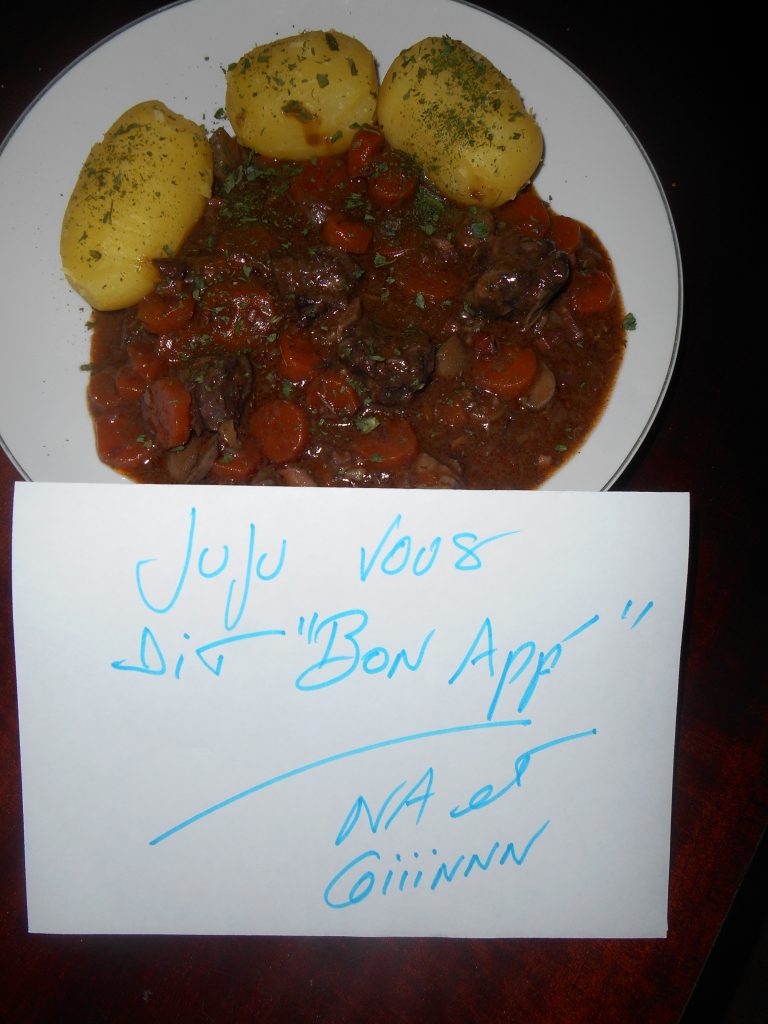 JUJU VOUS
DiT "BON APPé"
NA et
GiiiNNN